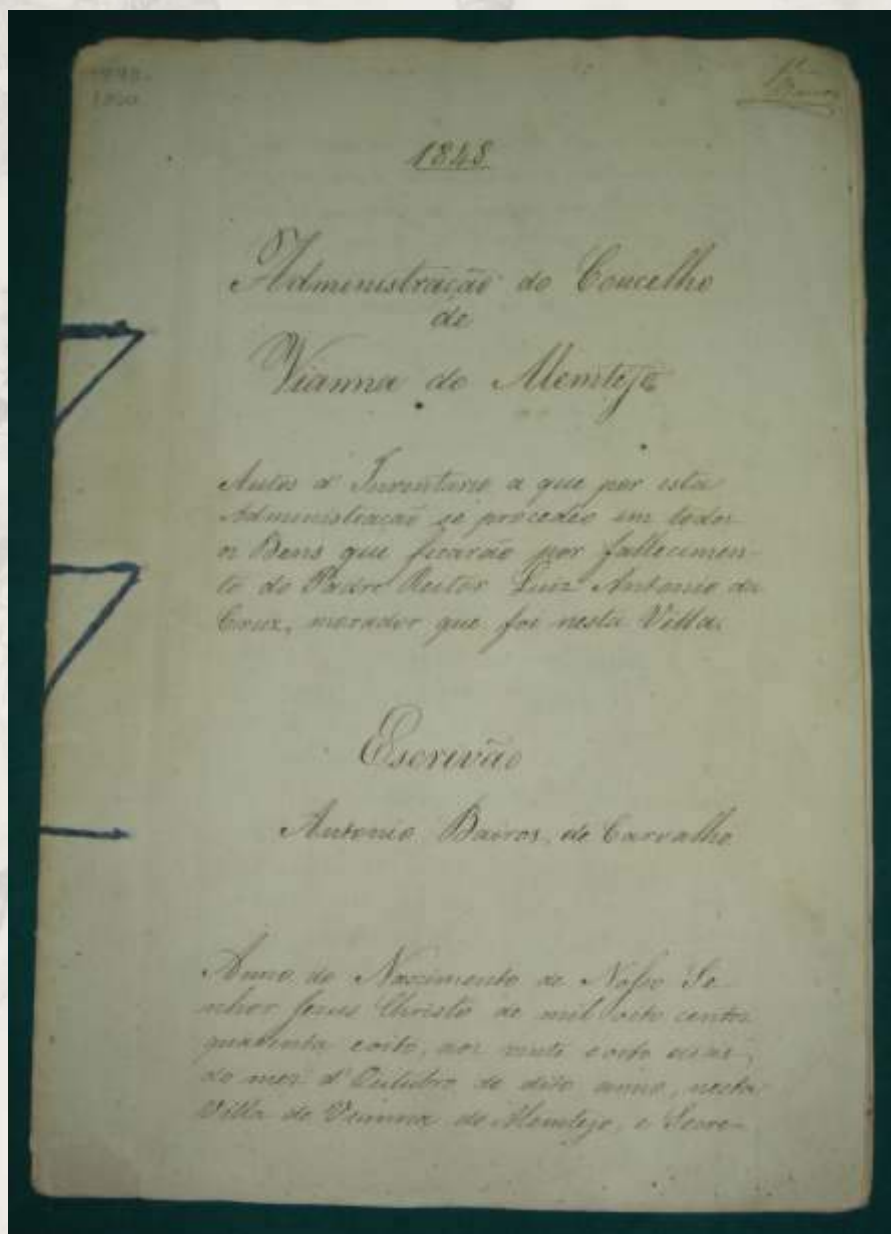 1848
Administração do Concelho
de
Vianna do Alemtejo
Autos d'Inventario a que por esta
Administracaõ se procedeo em todos
os Bens que ficarão por fallecimen-
to do Padre Reitor Luiz Antonio da
Cruz, morador que foi nesta Villa.
Escrivão
Antonio Bairos de Carvalho
Anno do Nascimento de Nosso Se
nhor Jesus Christo de mil oito centos
quarenta e oito, aos vinte e oito dias
do mez d'Outubro do dito anno, nesta
Villa de Vianna do Alemtejo, e Secre-